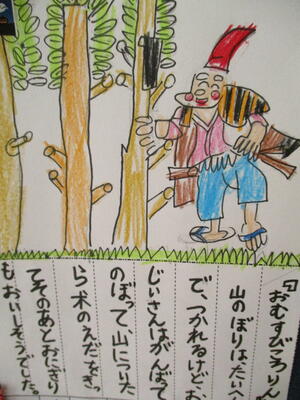 『おむすびころりん
山のぼりはたいへん
で、つかれるけど、お
じいさんはがんばって
のぼって、山についた
ら木のえだをきっ
てそのあとおにぎり
もおいしそうでした。